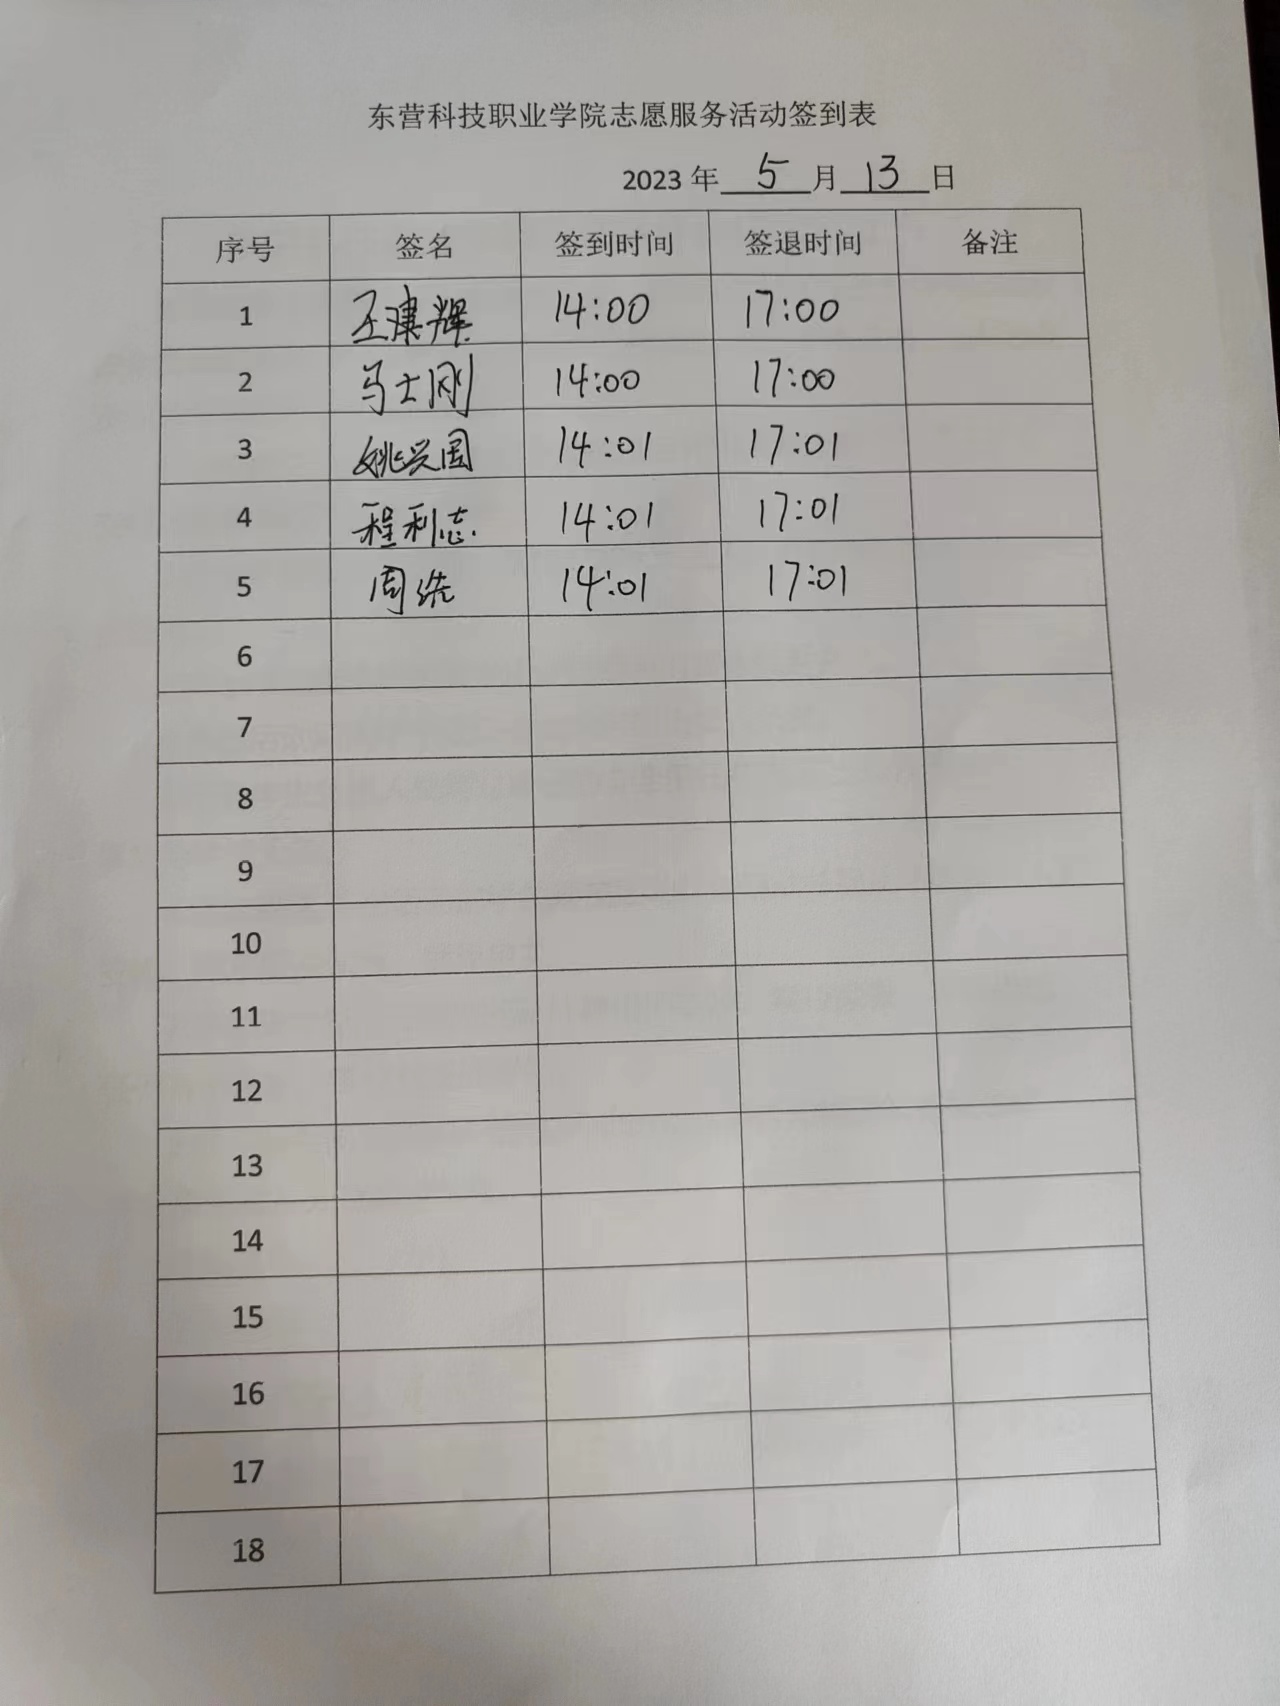 东营科技职业学院志愿服务活动签到表
2023 年 5 月 13 日
序号 签名 签到时间 签退时间 备注
1 王建辉 14:00 17:00
2 马士刚 14:00 17:00
3 姚兴国 14:01 17:01
4 程利志 14:01 17:01
5 周 14:01 17:01
6
7
8
9
10
11
12
13
14
15
16
17
18